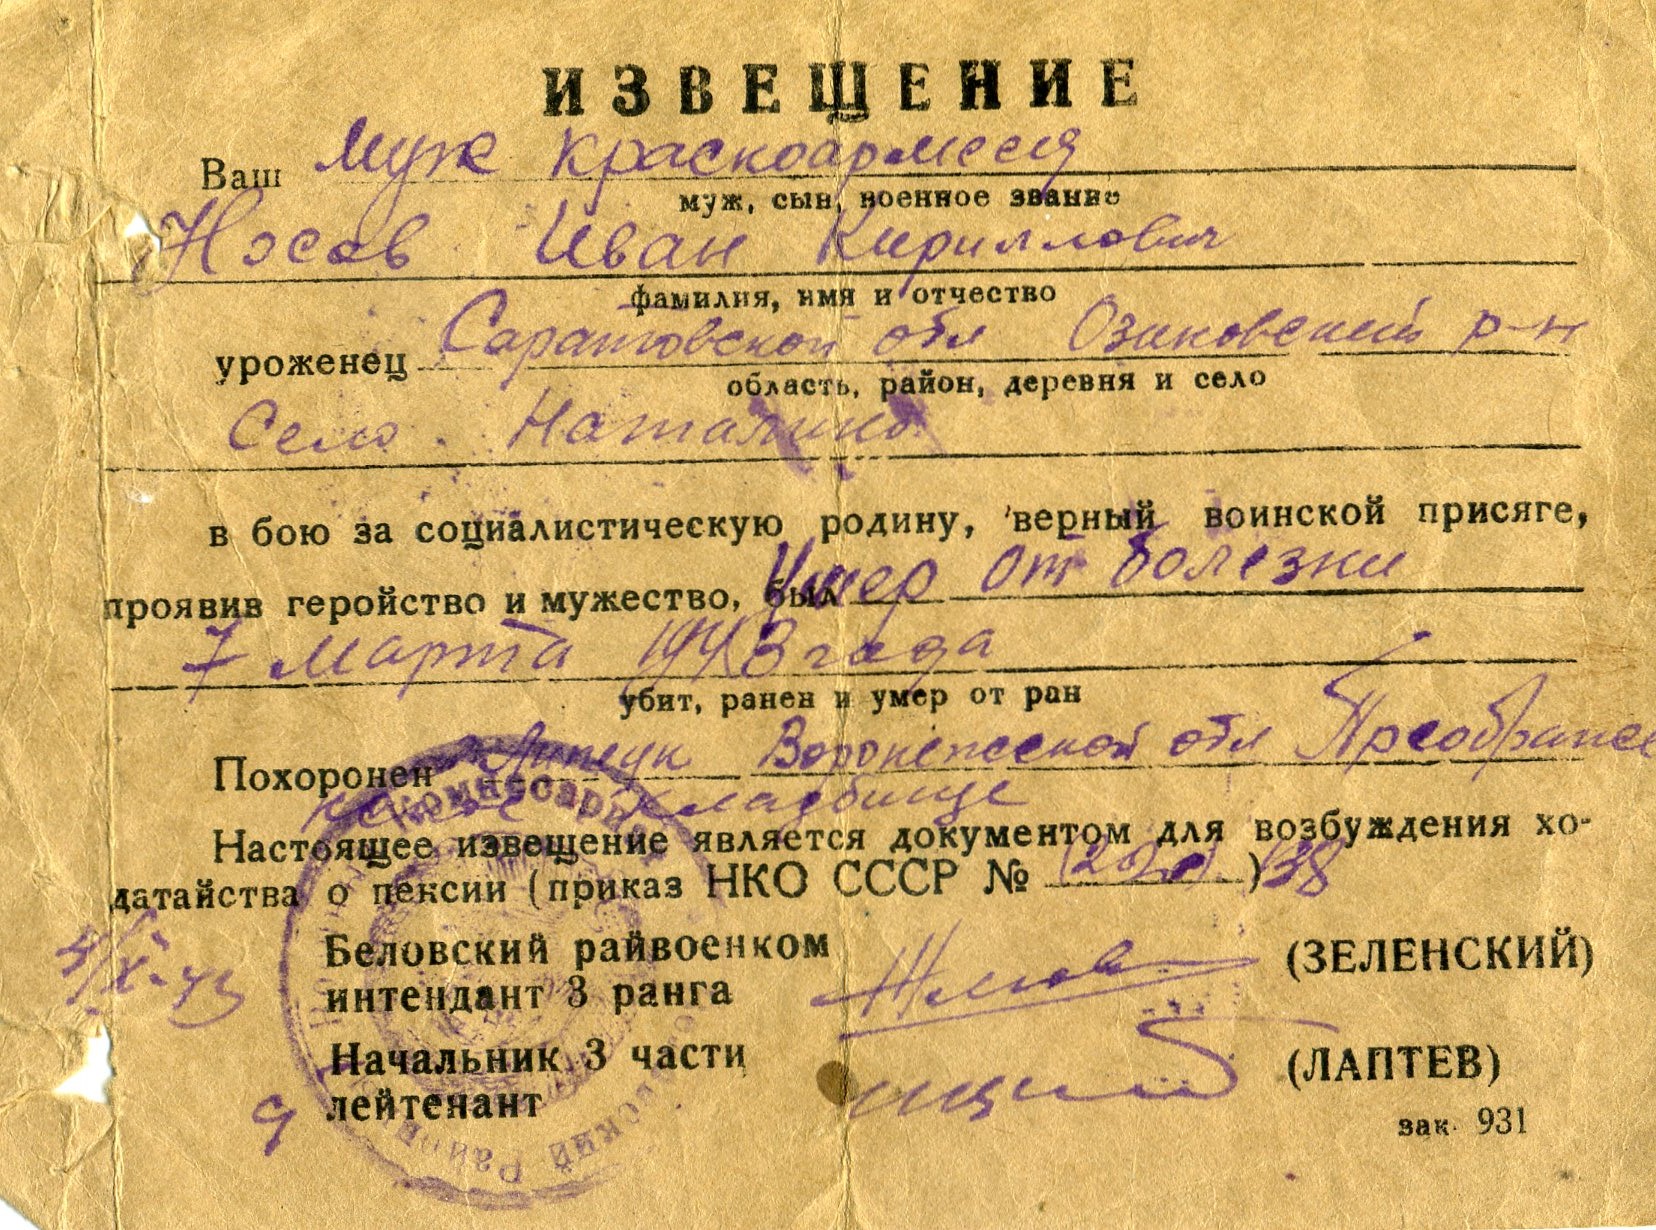 ИЗВЕЩЕНИЕ
Ваш муж красноармеец
муж, сын, военное звание
Носов Иван Кириллович
фамилия, имя и отчество
уроженец Саратовской обл Озинковский р-н
область, район, деревня и село
Село. Наталино
в бою за социалистическую родину, верный воинской присяге,
проявив геройство и мужество, был Умер от болезни
7 марта 1943 года
убит, ранен и умер от ран
Похоронен Липецк Воронежской обл Преображен
ское кладбище
Настоящее извещение является документом для возбуждения хо-
датайства о пенсии (приказ НКО СССР № 220) 38
Беловский райвоенком
интендант 3 ранга (ЗЕЛЕНСКИЙ)
Начальник 3 части
лейтенант (ЛАПТЕВ)
зак. 931